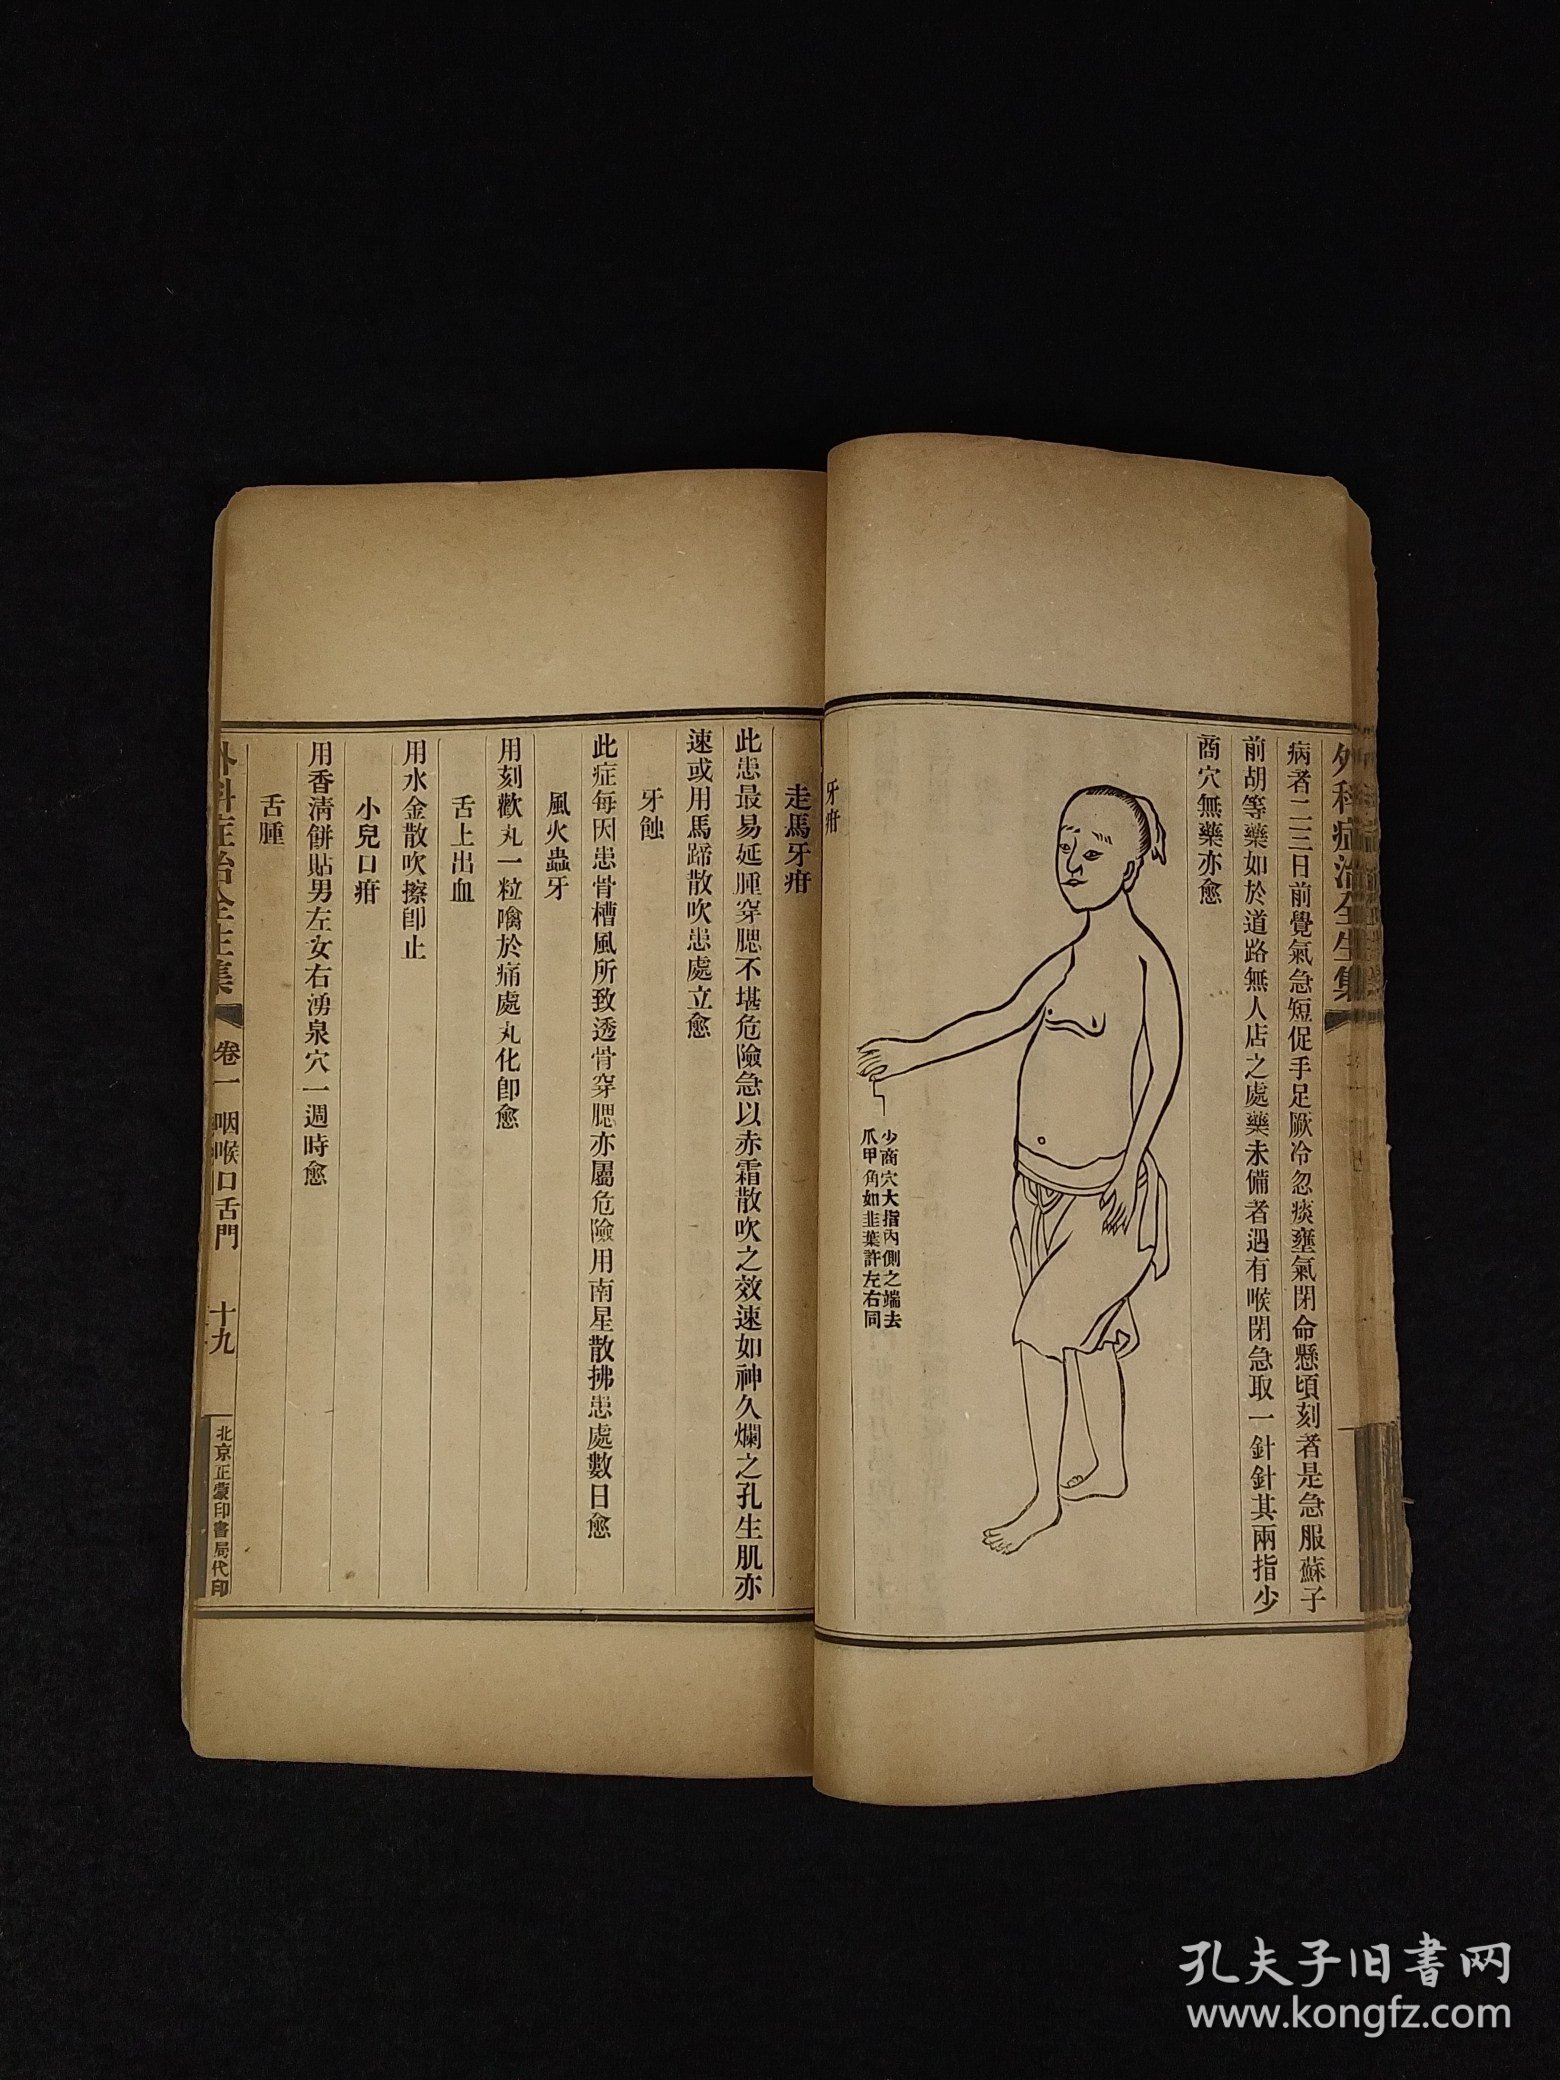 外科症治全生集
病者二三日前覺氣急短促手足厥冷忽痰壅氣閉命懸頃刻者是急服蘇子
前胡等藥如於道路無人店之處藥未備者遇有喉閉急取一針針其兩指少
商穴無藥亦愈
少商穴大指內側之端去
爪甲角如韭葉許左右同
牙疳
走馬牙疳
此患最易延腫穿腮不堪危險急以赤霜散吹之效速如神久爛之孔生肌亦
速或用馬蹄散吹患處立愈
牙蝕
此症每因患骨槽風所致透骨穿腮亦屬危險用南星散拂患處數日愈
風火蟲牙
用刻歡丸一粒噙於痛處丸化卽愈
舌上出血
用水金散吹擦卽止
小兒口疳
用香清餅貼男左女右湧泉穴一週時愈
舌腫
外科症治全生集 卷一 咽喉口舌門 十九 北京正蒙印書局代印
孔夫子旧书网
www.kongfz.com